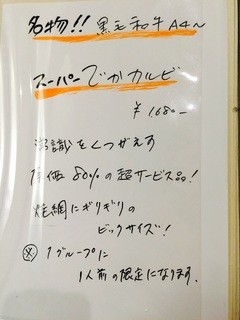 名物!! 黒毛和牛 A4〜
スーパーでかカルビ
¥1,680−
常識をくつがえす
原価80%の超サービス品!
焼網にギリギリの
ビックサイズ!
※ 1グループに
1人前の限定になります.